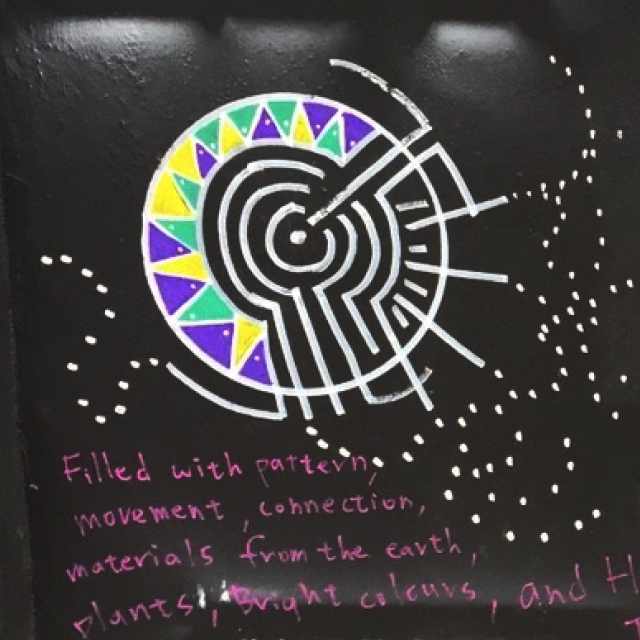 Filled with pattern,
movement, connection,
materials from the earth,
plants, Bright colours, and